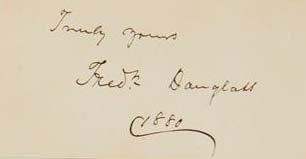 Truly yours
Fredk Douglass
1880